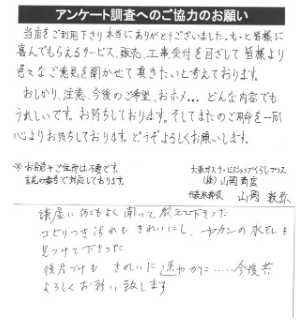 アンケート調査へのご協力のお願い
当店をご利用下さり本当にありがとうございました。もっと皆様に
喜んでもらえるサービス、販売、工事受付を目ざして皆様より
色々なご意見を聞かせて頂きたいと考えております。
おしかり、注意、今後のご希望、おホメ...どんな内容でも
うれしいです。お待ちしております。そしてまたのご用命を一同
心よりお待ちしております。どうぞよろしくお願いします。
※お名前やご住所は不要です。
大阪ガスサービスショップくらしプラス
(株)山岡商店
代表取締役 山岡
何でもよく聞いて
コビリつき汚れもきれいにし、ヤカンの水もれも
見つけて下さった
後片づけも きれいに速やかに……今後共
よろしくお願い致します